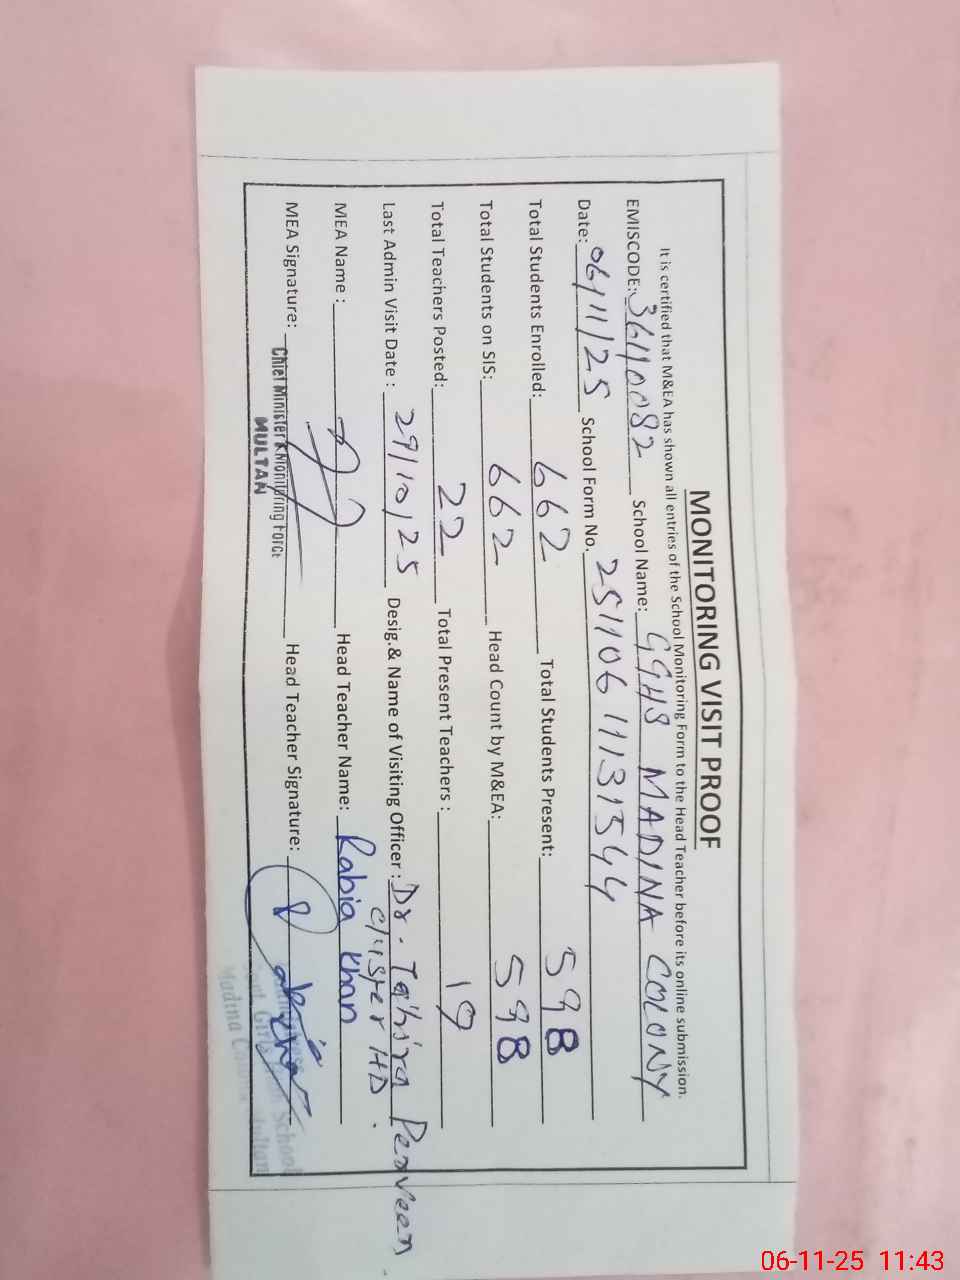 MONITORING VISIT PROOF
It is certified that M&EA has shown all entries of the School Monitoring Form to the Head Teacher before its online submission.
EMISCODE: 36110082 School Name: GGHS MADINA COLONY
Date: 06/11/25 School Form No. 25110611131544
Total Students Enrolled: 662 Total Students Present: 598
Total Students on SIS: 662 Head Count by M&EA: 598
Total Teachers Posted: 22 Total Present Teachers : 19
Last Admin Visit Date : 29/10/25 Desig.& Name of Visiting Officer : Dr. Tahira Perveen
Cluster HD.
MEA Name : Head Teacher Name: Rabia Khan
MEA Signature: Head Teacher Signature:
Chief Minister Monitoring Force
MULTAN
Govt. Girls School
Madina Multan
06-11-25 11:43